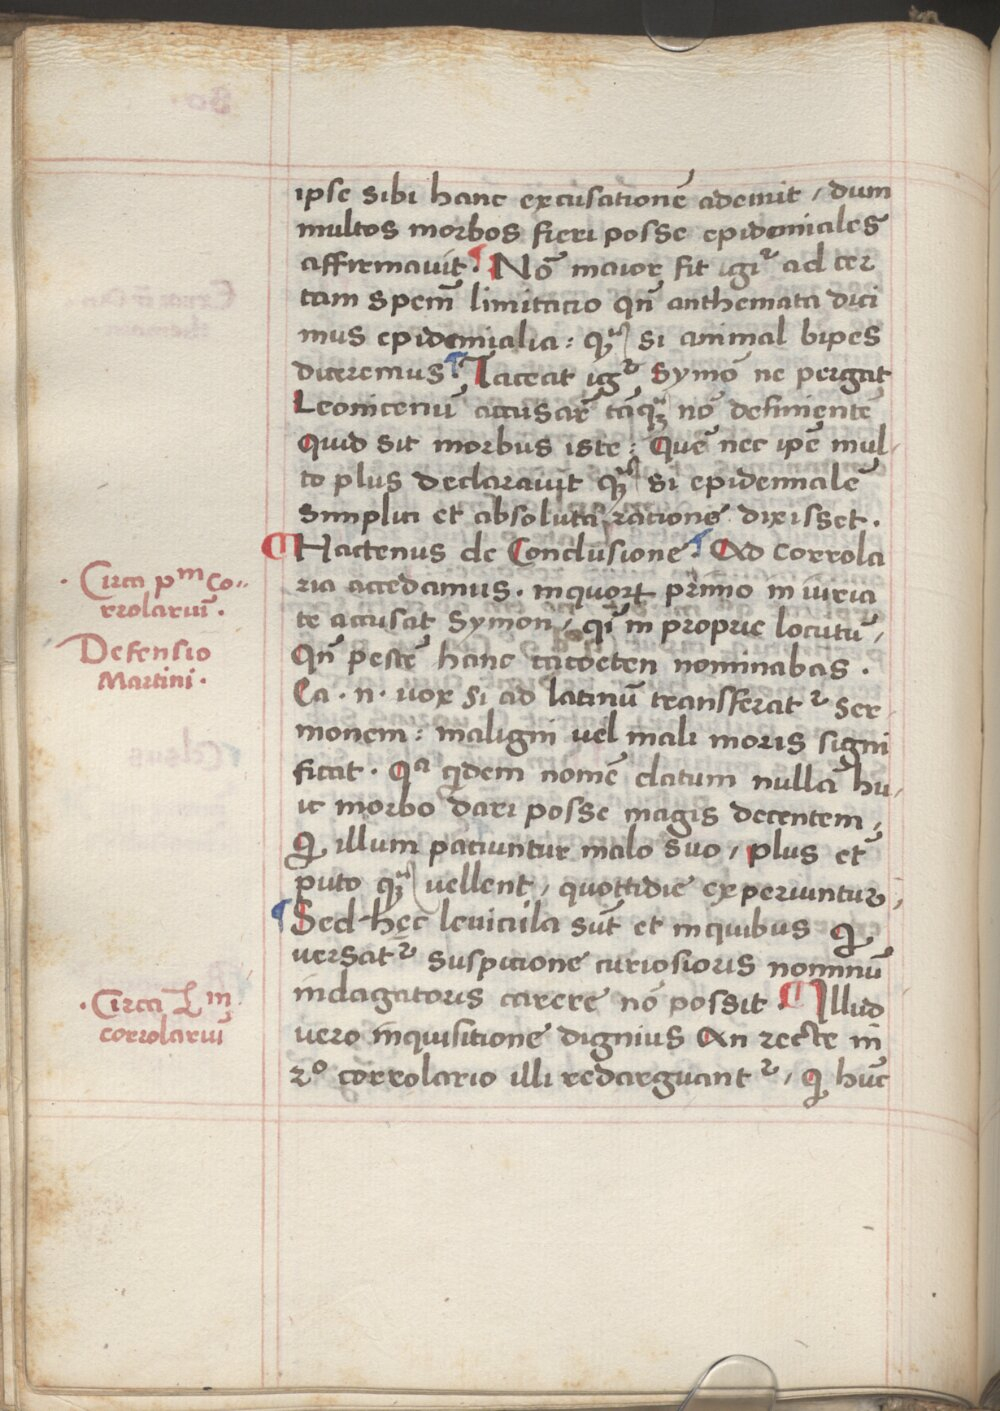 ipse sibi hanc excusationē ademit / dum
multos morbos fieri posse epidemiales
affirmavit. ¶ Nō maior fit igr̄ ad cer
tam spem̄ limitacio qn̄ anthemata dici
mus epidemialia : qꝫ si animal bipes
diceremus. ¶ Taceat igr̄ Symō ne pergat
Leonicenū accusar̄ tāqꝫ nō definientē
Quid sit morbus iste : Quē nec ip̄e mul-
to plus declaravit qꝫ si epidemialē
Simplici et absoluta ratione dixisset .
¶ Hactenus de Conclusione. ¶ Ad corrola
ria accedamus . inquorꝝ primo in iuria
te accusat Symon / qī in proprie locutū /
Qn̄ pestē hanc cacoeten nominabas .
Ea . n . vox si ad latinū transferatr̄ ser-
monem : maligni vel mali moris signi
ficat . Qa qdem nomē elatum nullā hu-
ic morbo dari posse magis decentem /
Qi illum paciuntur malo suo / plus et̄
puto qꝫ vellent / quottidie experiuntur /
¶ Sed hęc levicula sūt et in quibus qi
versatr̄ suspicione curiosioris nominū
indagatoris carere nō possit . ¶ Illud
vero inquisitione dignius An recte in
2o corrolario illi redarguantr̄ / qi hūc
. Circa pm Co-
rrolariū .
Defensio
Martini .
. Circa 2m
corrolariū